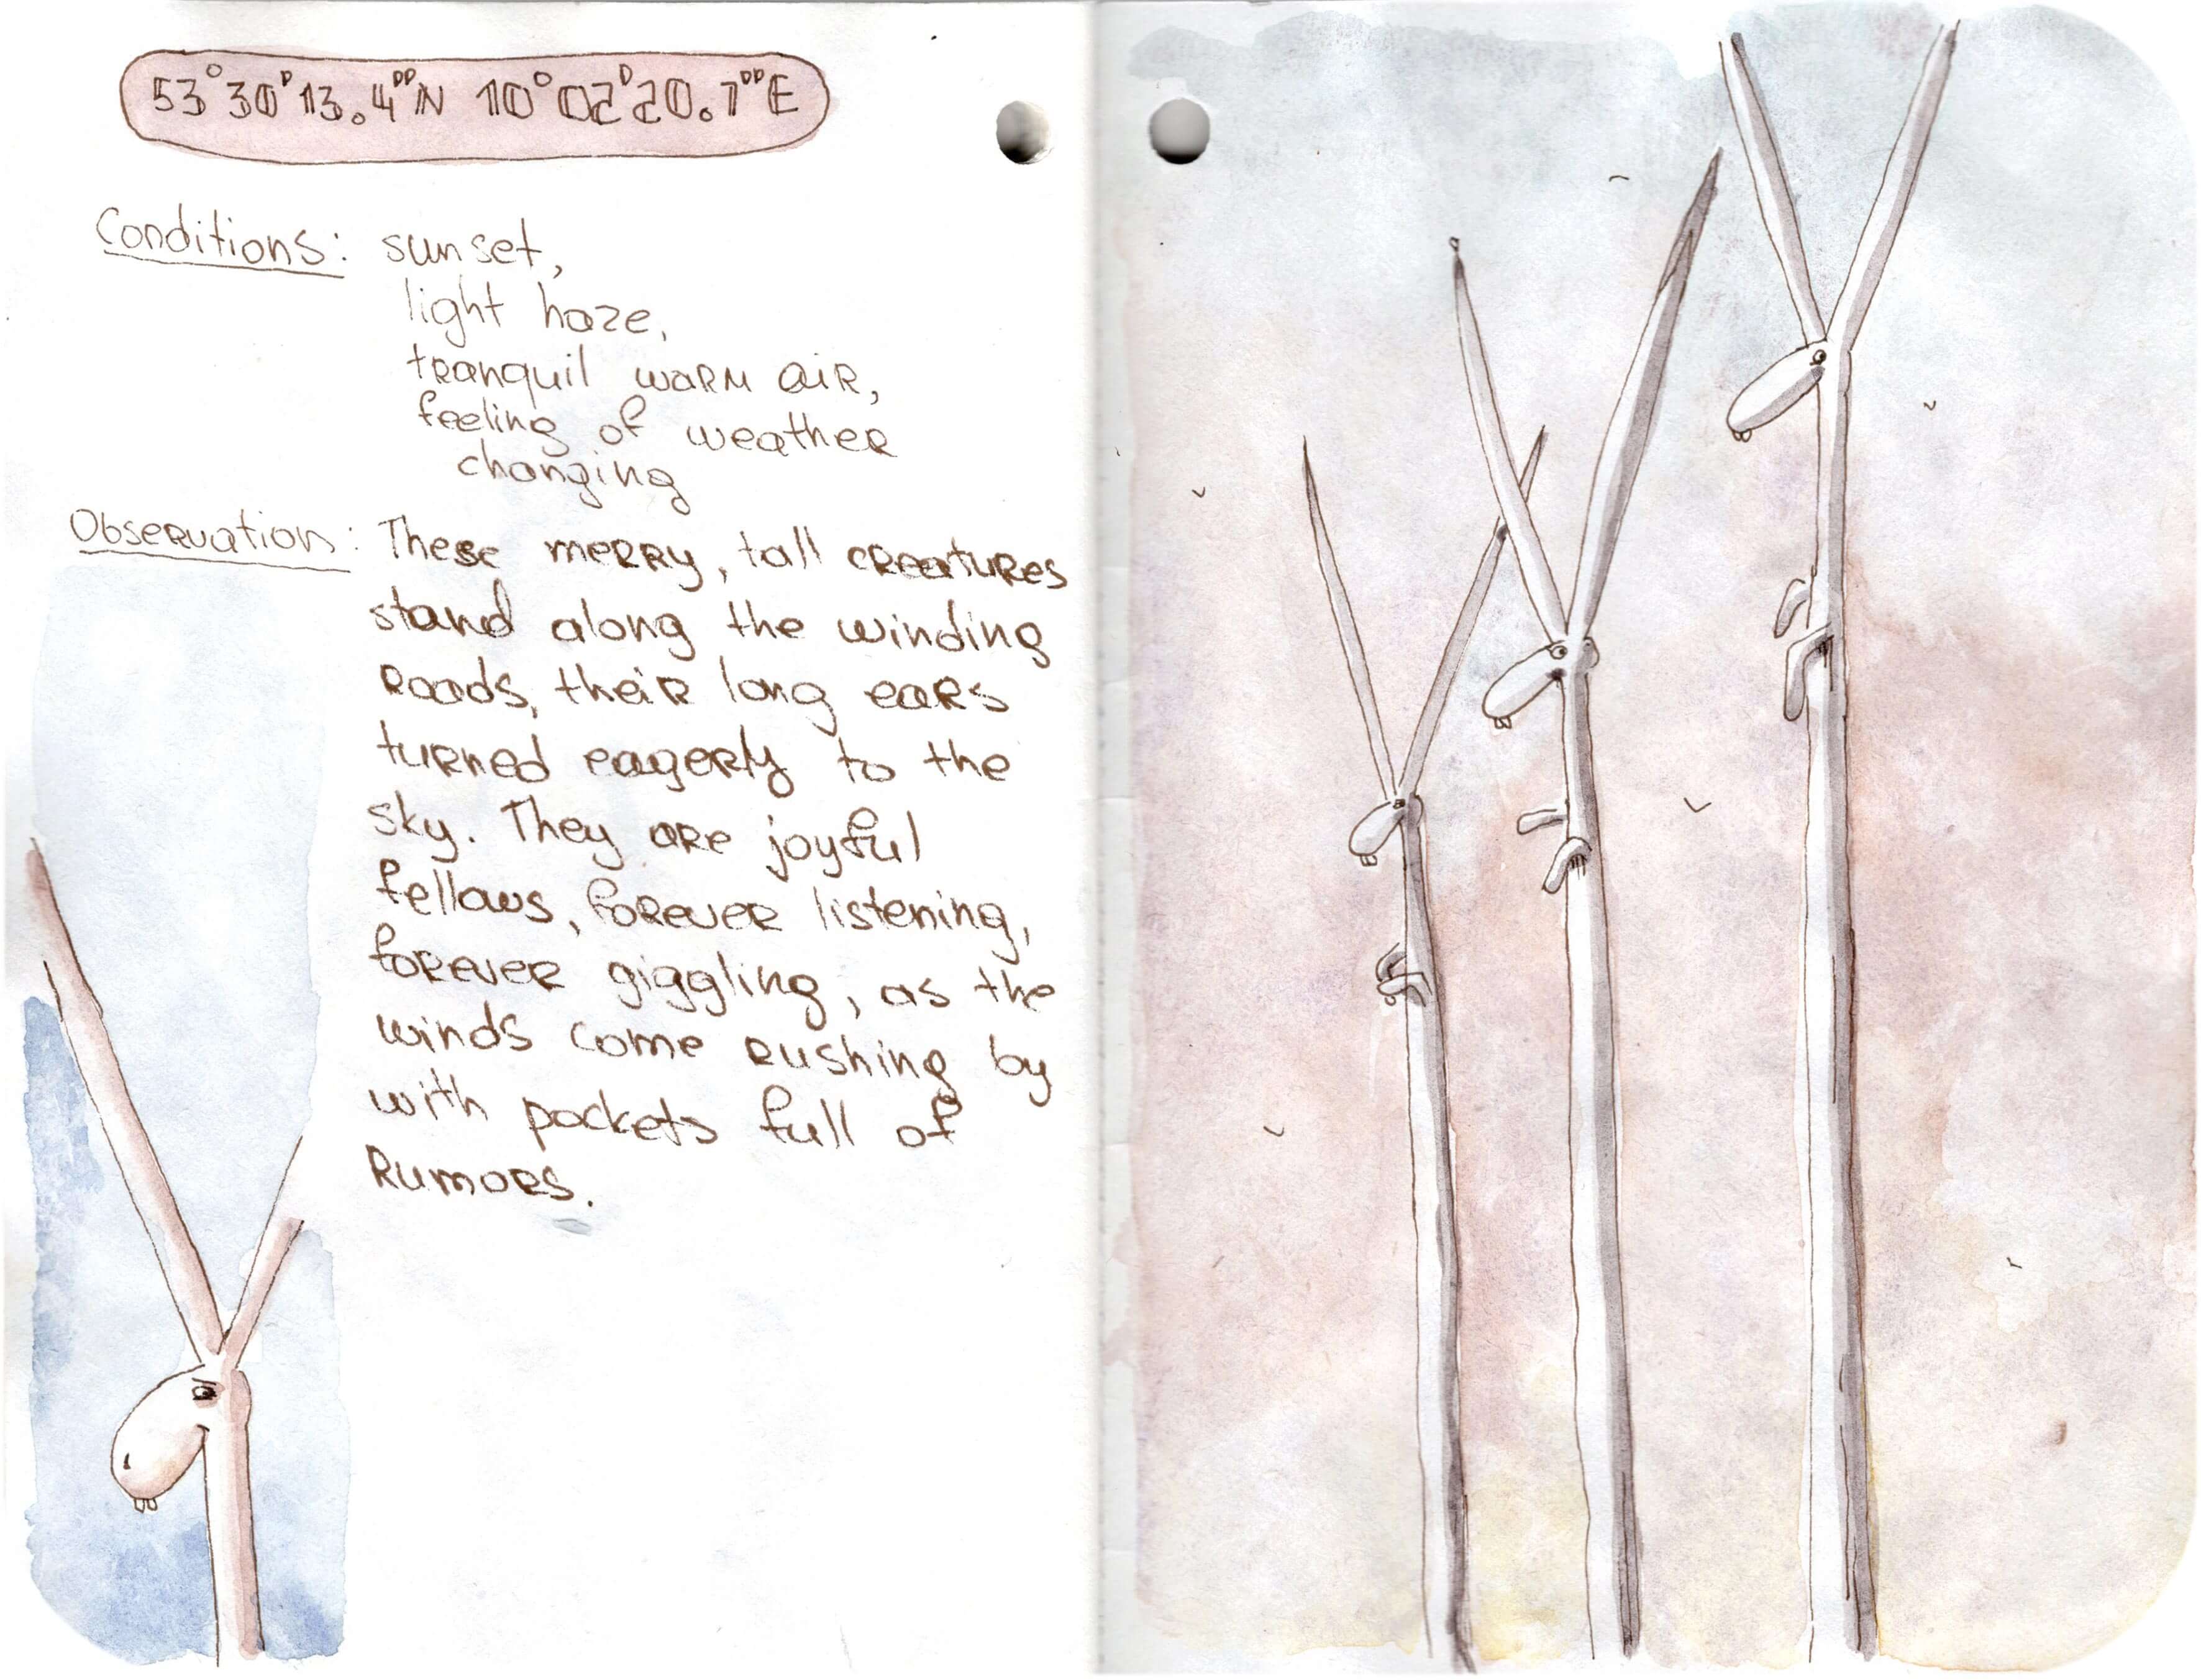 53°30'13.4"N 10°02'20.7"E
Conditions: sunset,
light haze,
tranquil warm air,
feeling of weather
changing
Observation: These merry, tall creatures
stand along the winding
roads, their long ears
turned eagerly to the
sky. They are joyful
fellows, forever listening,
forever giggling, as the
winds come rushing by
with pockets full of
Rumors.